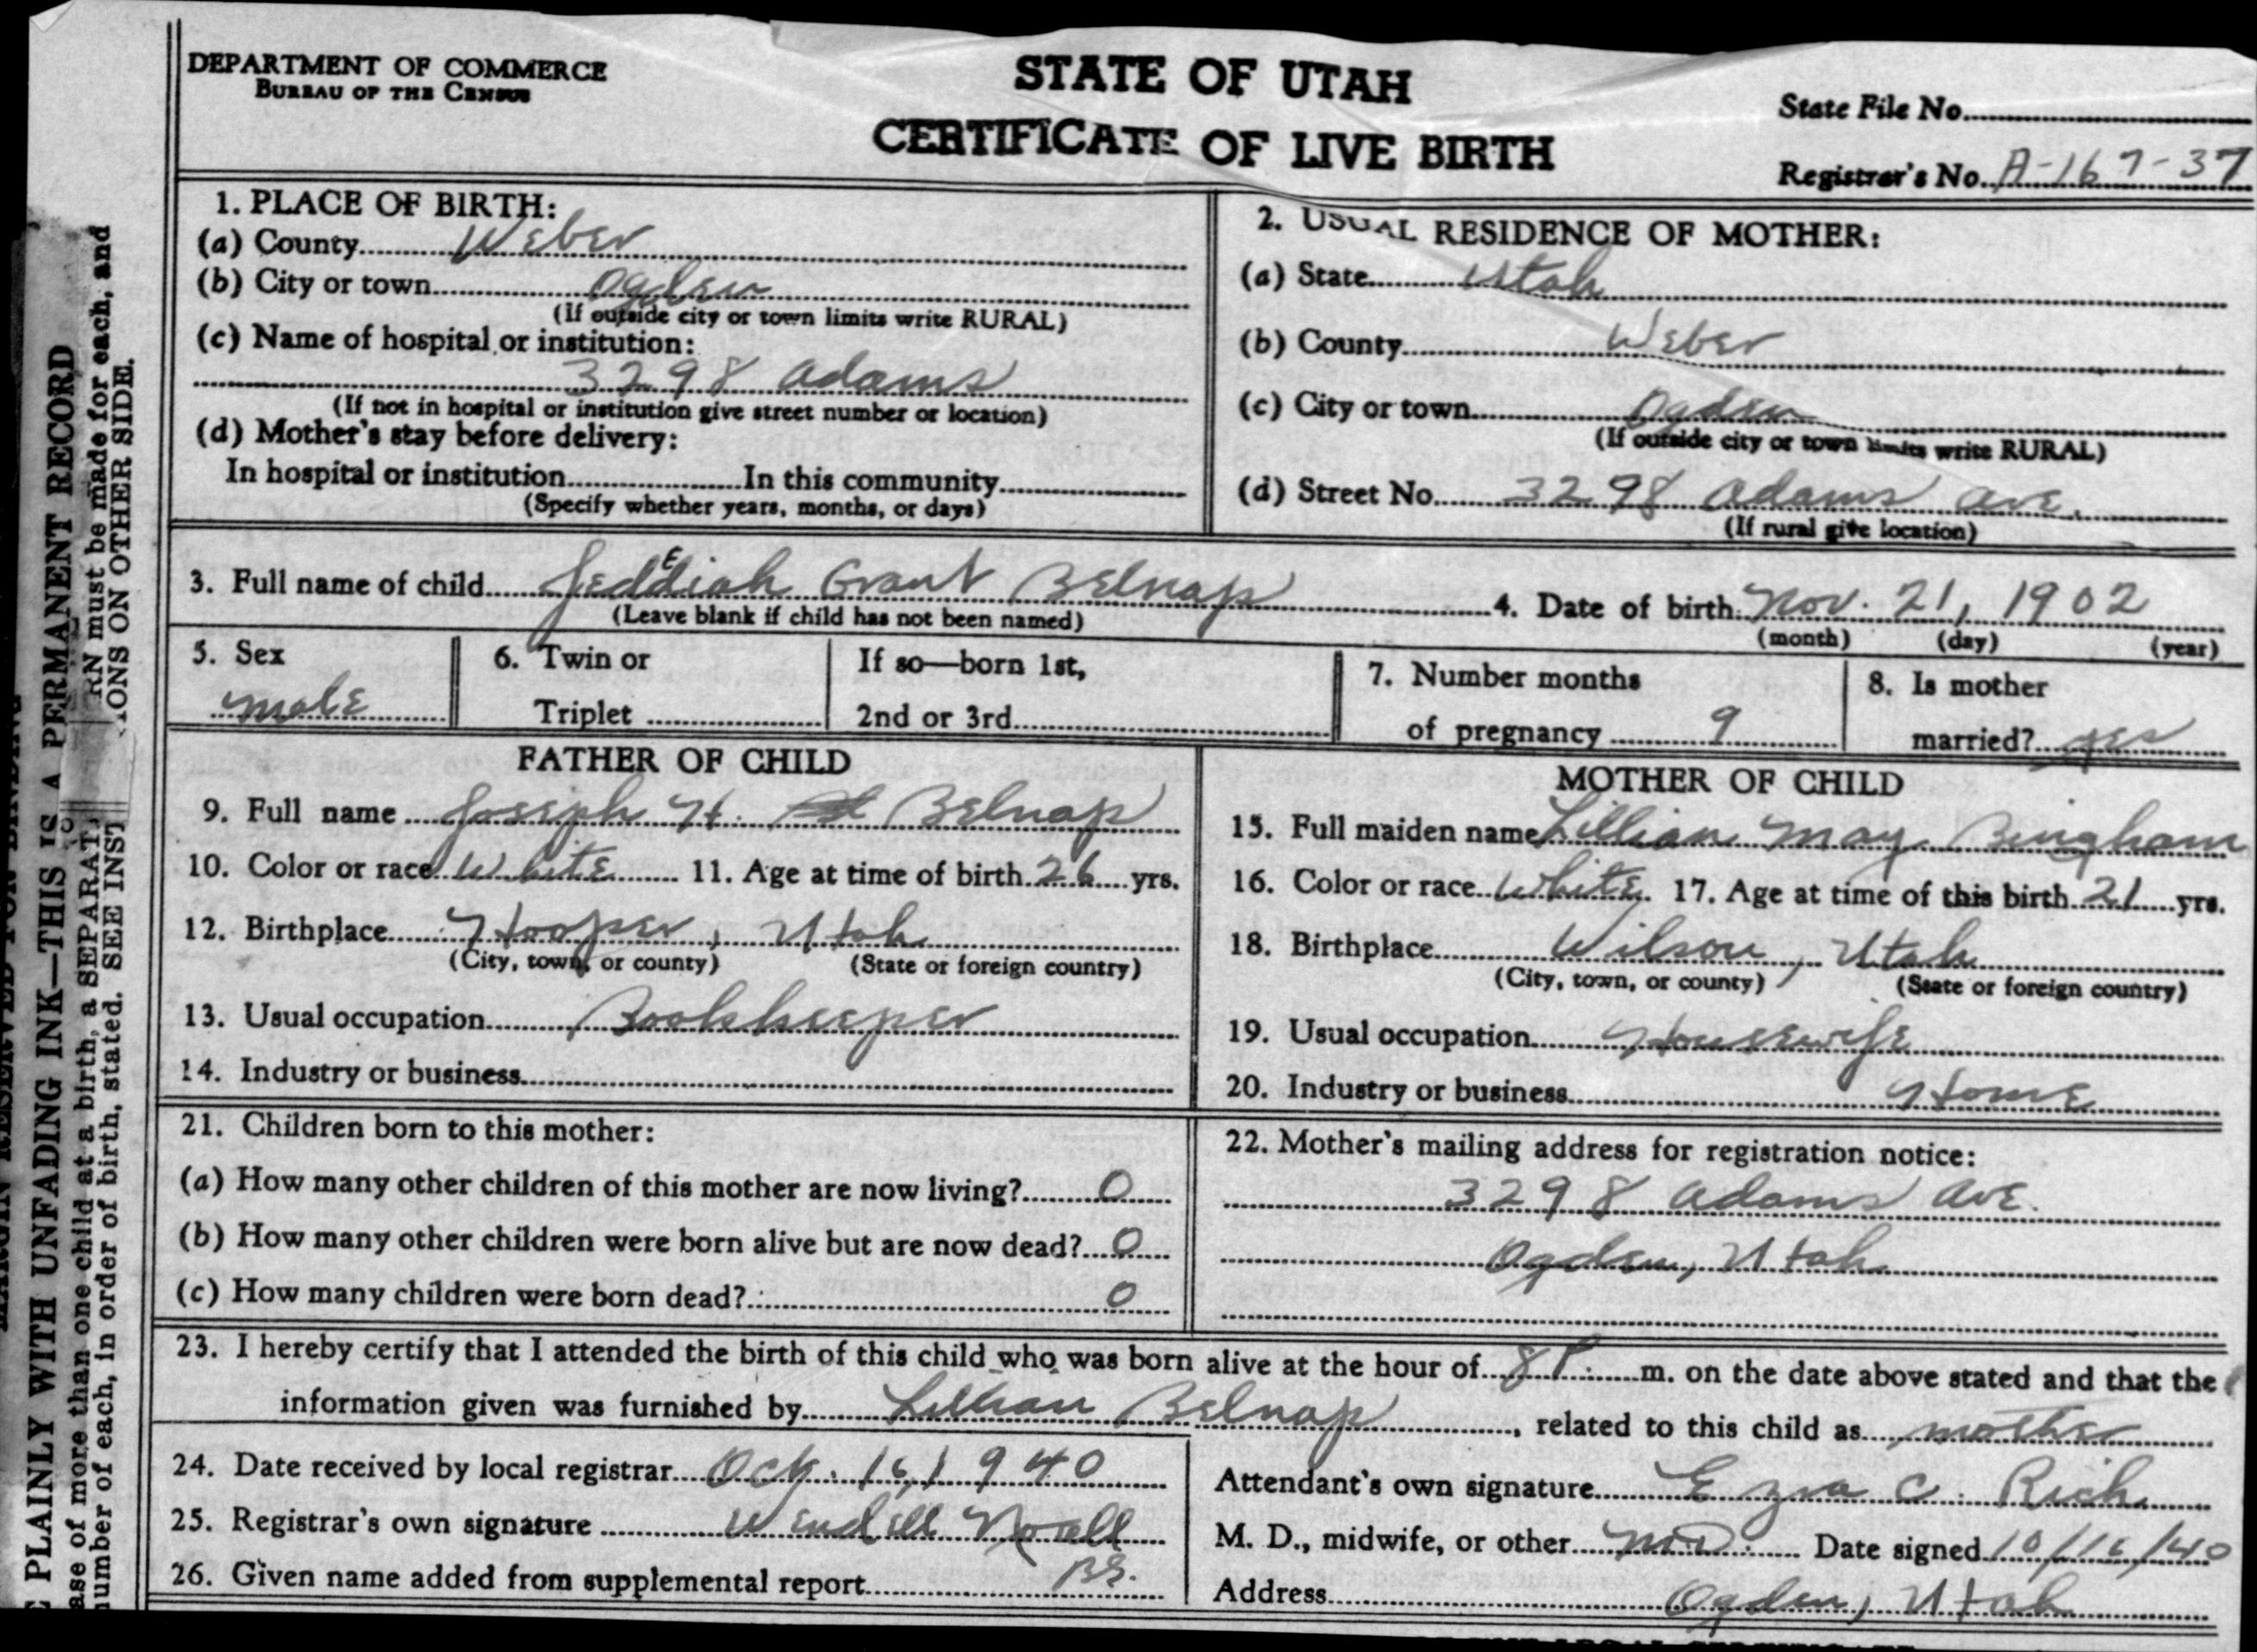 DEPARTMENT OF COMMERCE
BUREAU OF THE CENSUS
STATE OF UTAH
CERTIFICATE OF LIVE BIRTH
State File No.
Registrar's No. A-167-37
1. PLACE OF BIRTH:
(a) County Weber
(b) City or town Ogden
(If outside city or town limits write RURAL)
(c) Name of hospital or institution:
3298 Adams
(If not in hospital or institution give street number or location)
(d) Mother's stay before delivery:
In hospital or institution In this community
(Specify whether years, months, or days)
2. USUAL RESIDENCE OF MOTHER:
(a) State Utah
(b) County Weber
(c) City or town Ogden
(If outside city or town limits write RURAL)
(d) Street No. 3298 Adams Ave.
(If rural give location)
3. Full name of child Jeddediah Grant Belnap 4. Date of birth Nov. 21, 1902
(Leave blank if child has not been named) (month) (day) (year)
5. Sex
male
6. Twin or
Triplet
If so—born 1st,
2nd or 3rd
7. Number months
of pregnancy 9
8. Is mother
married? yes
FATHER OF CHILD
9. Full name Joseph H. Belnap
10. Color or race White 11. Age at time of birth 26 yrs.
12. Birthplace Hooper, Utah
(City, town, or county) (State or foreign country)
13. Usual occupation Bookkeeper
14. Industry or business
MOTHER OF CHILD
15. Full maiden name Lillian May Bingham
16. Color or race White 17. Age at time of this birth 21 yrs.
18. Birthplace Wilson, Utah
(City, town, or county) (State or foreign country)
19. Usual occupation Housewife
20. Industry or business Home
21. Children born to this mother:
(a) How many other children of this mother are now living? 0
(b) How many other children were born alive but are now dead? 0
(c) How many children were born dead? 0
22. Mother's mailing address for registration notice:
3298 Adams Ave.
Ogden, Utah
23. I hereby certify that I attended the birth of this child who was born alive at the hour of 8 P. m. on the date above stated and that the
information given was furnished by Lillian Belnap, related to this child as mother
24. Date received by local registrar Oct. 16, 1940
25. Registrar's own signature Wendell Noall
26. Given name added from supplemental report BS.
Attendant's own signature Ezra C. Rich
M. D., midwife, or other M.D. Date signed 10/16/40
Address Ogden, Utah
PLAINLY WITH UNFADING INK—THIS IS A PERMANENT RECORD
ase of more than one child at a birth, a SEPARAT RN must be made for each, and
number of each, in order of birth, stated. SEE INST IONS ON OTHER SIDE.